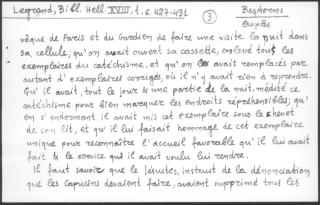 Legrand, Bibl. Hell. XVIII, 1, σ. 427-431
3
Βησδεσης
Θωμᾶς
vêque de Paris et du Gardien de faire une visite la nuit dans
sa cellule; qu'on avait ouvert sa cassette, enlevé tous les
exemplaires du catéchisme, et qu'on les avait remplacés par
autant d'exemplaires corrigés, où il n'y avait rien à reprendre.
Qu'il avait, tout le jour & une partie de la nuit, médité ce
catéchisme pour bien marquer les endroits répréhensibles; qu'
en s'endormant il avait mis cet exemplaire sous le chevet
de son lit, et qu'il lui faisait hommage de cet exemplaire
unique pour reconnaître l'accueil favorable qu'il lui avait
fait & le service qu'il avait voulu lui rendre.
Il faut savoir que le Jésuites, instruit de la dénonciation
que les Capucins devaient faire, avaient supprimé tous les